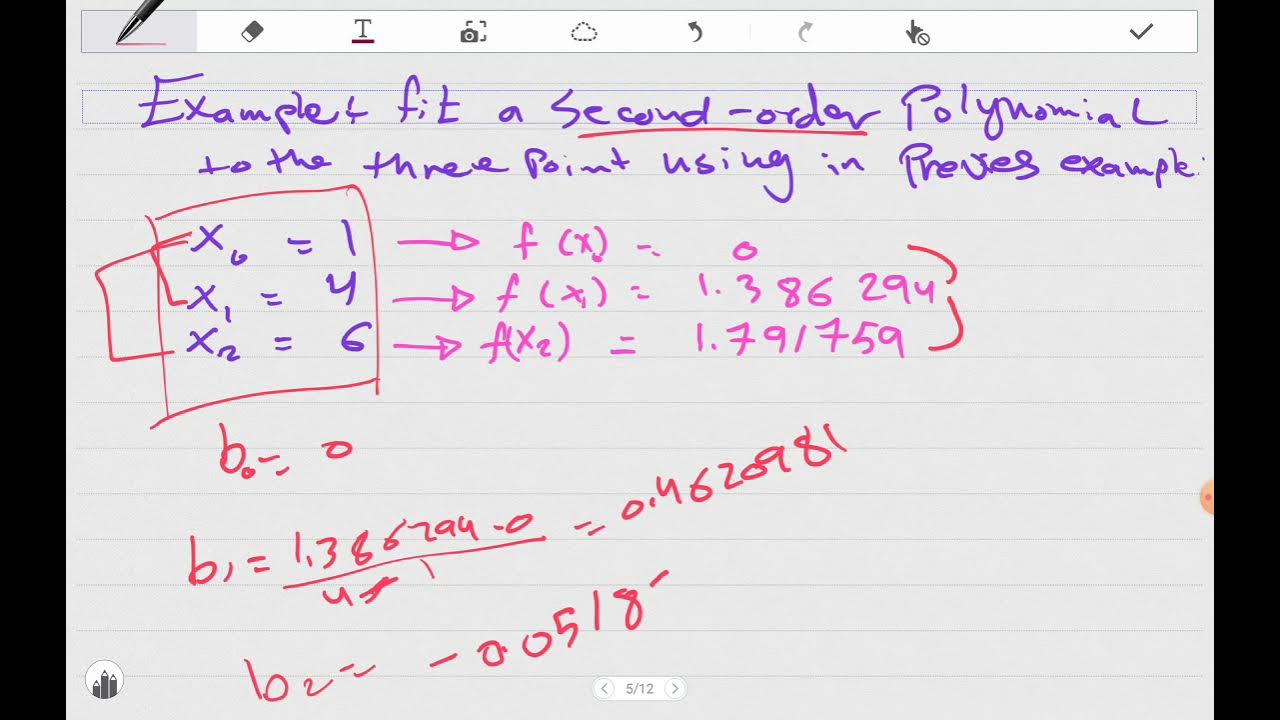 T
Example: fit a second-order Polynomial
to the three Point using in Previes example.
x₀ = 1 → f(x₀) = 0
x₁ = 4 → f(x₁) = 1.386294
x₂ = 6 → f(x₂) = 1.791759
b₀ = 0
b₁ = 1.386294-0 / 4-1 = 0.4620981
b₂ = -0.0518
5/12